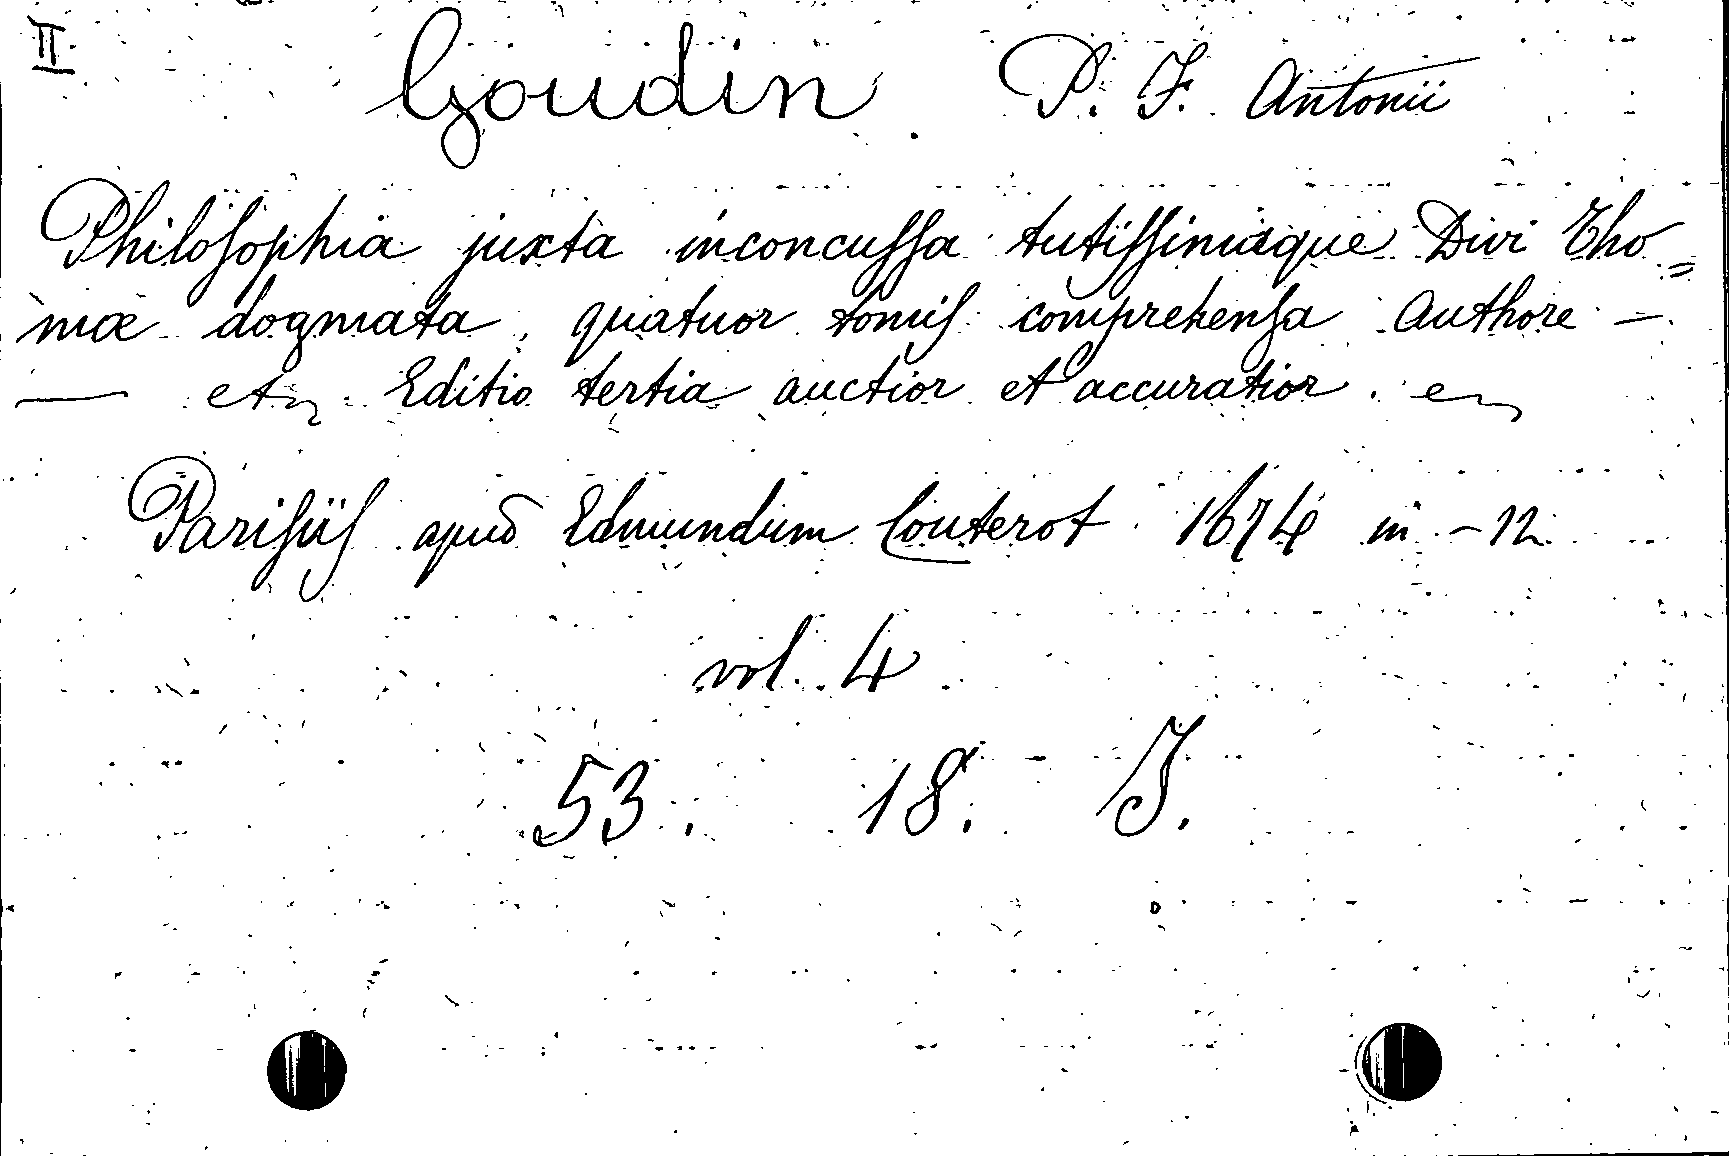 II.
Goudin P. F. Antonii
Philosophia juxta inconcussa tutissimaque Divi Tho=
mæ dogmata, quatuor tomis comprehensa Authore —
— etc. Editio tertia auctior et accuratior.
Parisiis apud Edmundum Couterot 1674 in-12
vol. 4
53. 18. J.